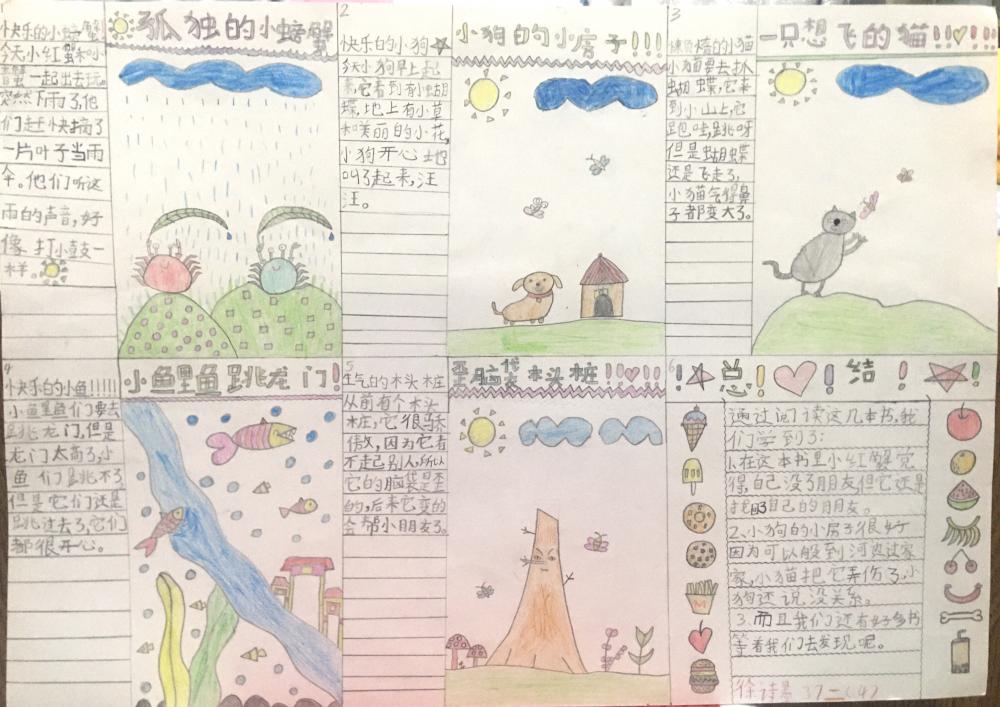 1
快乐的小螃蟹
今天小红蟹和小
青蟹一起出去玩。
突然下雨了,他
们赶快搞了
一片叶子当雨
伞。他们听这
雨的声音,好
像打小鼓一
样。
孤独的小螃蟹
2
快乐的小狗
今天小狗早上起
来,它看到有小蝴
蝶,地上有小草
和美丽的小花,
小狗开心地
叫了起来,汪
汪。
小狗的小房子!!!
3
愤怒的小猫
小猫要去抓
蝴蝶,它来
到小山上,它
跑哇,跳呀
但是蝴蝶
还是飞走了,
小猫气得鼻
子都变大了。
一只想飞的猫!!!!
4
快乐的小鱼!!!!!
小鱼里鱼们要去
跳龙门,但是
龙门太高了,小
鱼们跳不了
但是它们还是
跳过去了,它们
都很开心。
小鱼里鱼跳龙门!
5
生气的木头桩
从前有个木头
桩,它很骄
傲,因为它看
不起别人,所以
它的脑袋是歪
的,后来它变的
会帮小朋友了。
歪脑袋木头桩!!!!
6
!总!!结!!
通过阅读这几本书,我
们学到了:
1.在这本书里小红蟹觉
得自己没了朋友,但它还是
找到自己的朋友。
2.小狗的小房子很好
因为可以般到河边过家
家,小猫把它弄伤了,小
狗还说没关系。
3.而且我们还有好多书
等着我们去发现呢。
M